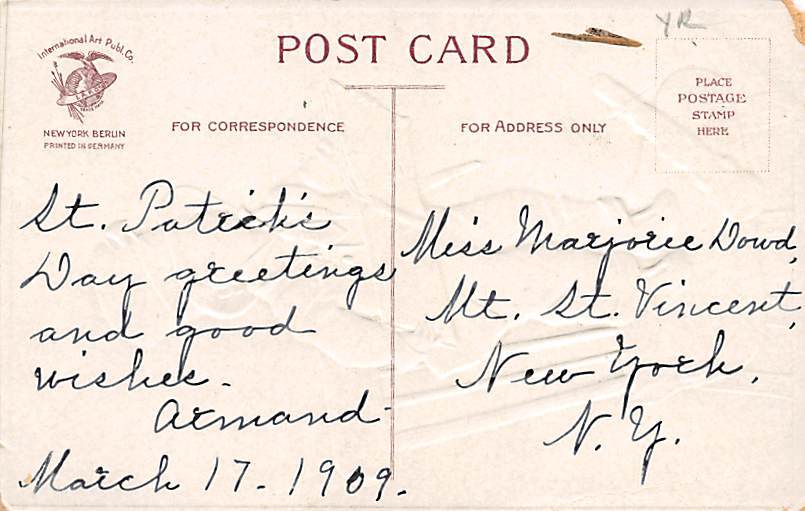 International Art Publ. Co.
NEW YORK BERLIN
PRINTED IN GERMANY
POST CARD
YR
PLACE
POSTAGE
STAMP
HERE
FOR CORRESPONDENCE
FOR ADDRESS ONLY
St. Patrick's
Day greetings
and good
wishes.
Armand-
March 17-1909.
Miss Marjorie Dowd,
Mt. St. Vincent,
New York,
N.Y.